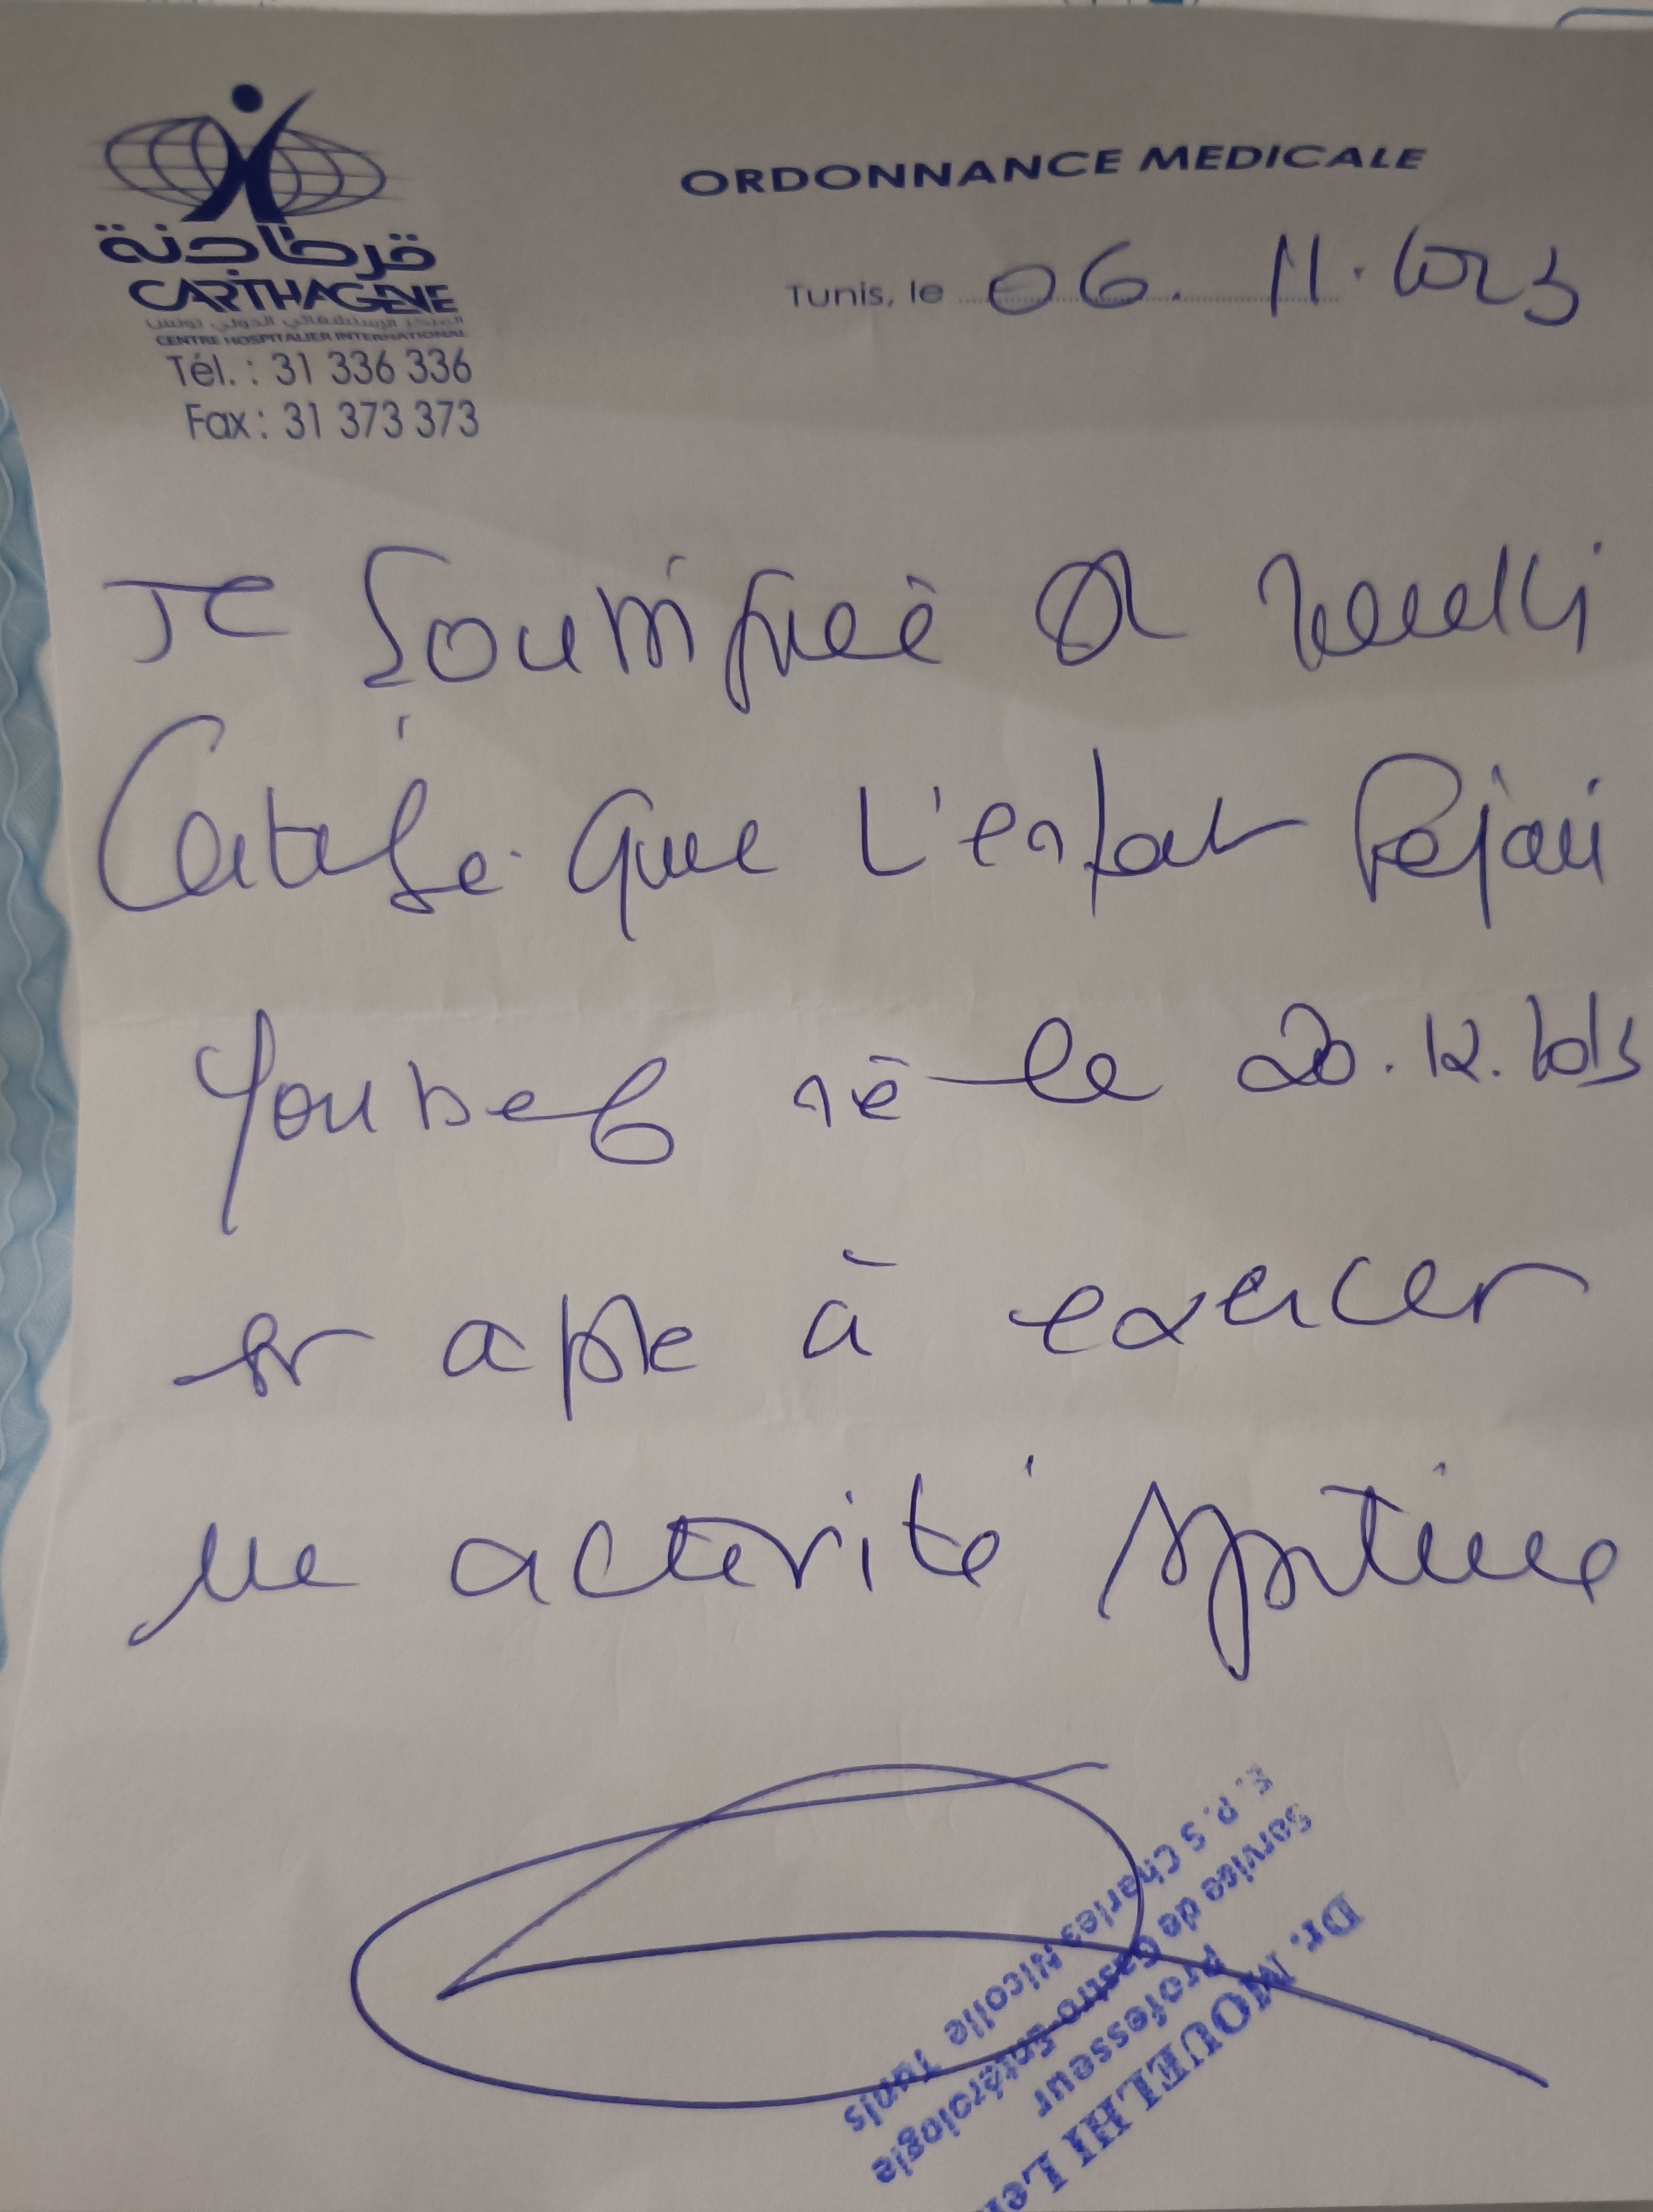 قرطاجنة
CARTHAGENE
المركز الإستشفائي الدولي تونس
CENTRE HOSPITALIER INTERNATIONAL
Tél. : 31 336 336
Fax : 31 373 373
ORDONNANCE MEDICALE
Tunis, le 06. 11. 2023
Je soussignée Dr
Certifie que l'enfant Rejaii
Youssef né le 20.12.2013
est apte à exercer
une activité sportive
Dr. MOUELHI Le
Professeur
Service de Gastro-Entérologie
E. P. S Charles Nicolle Tunis